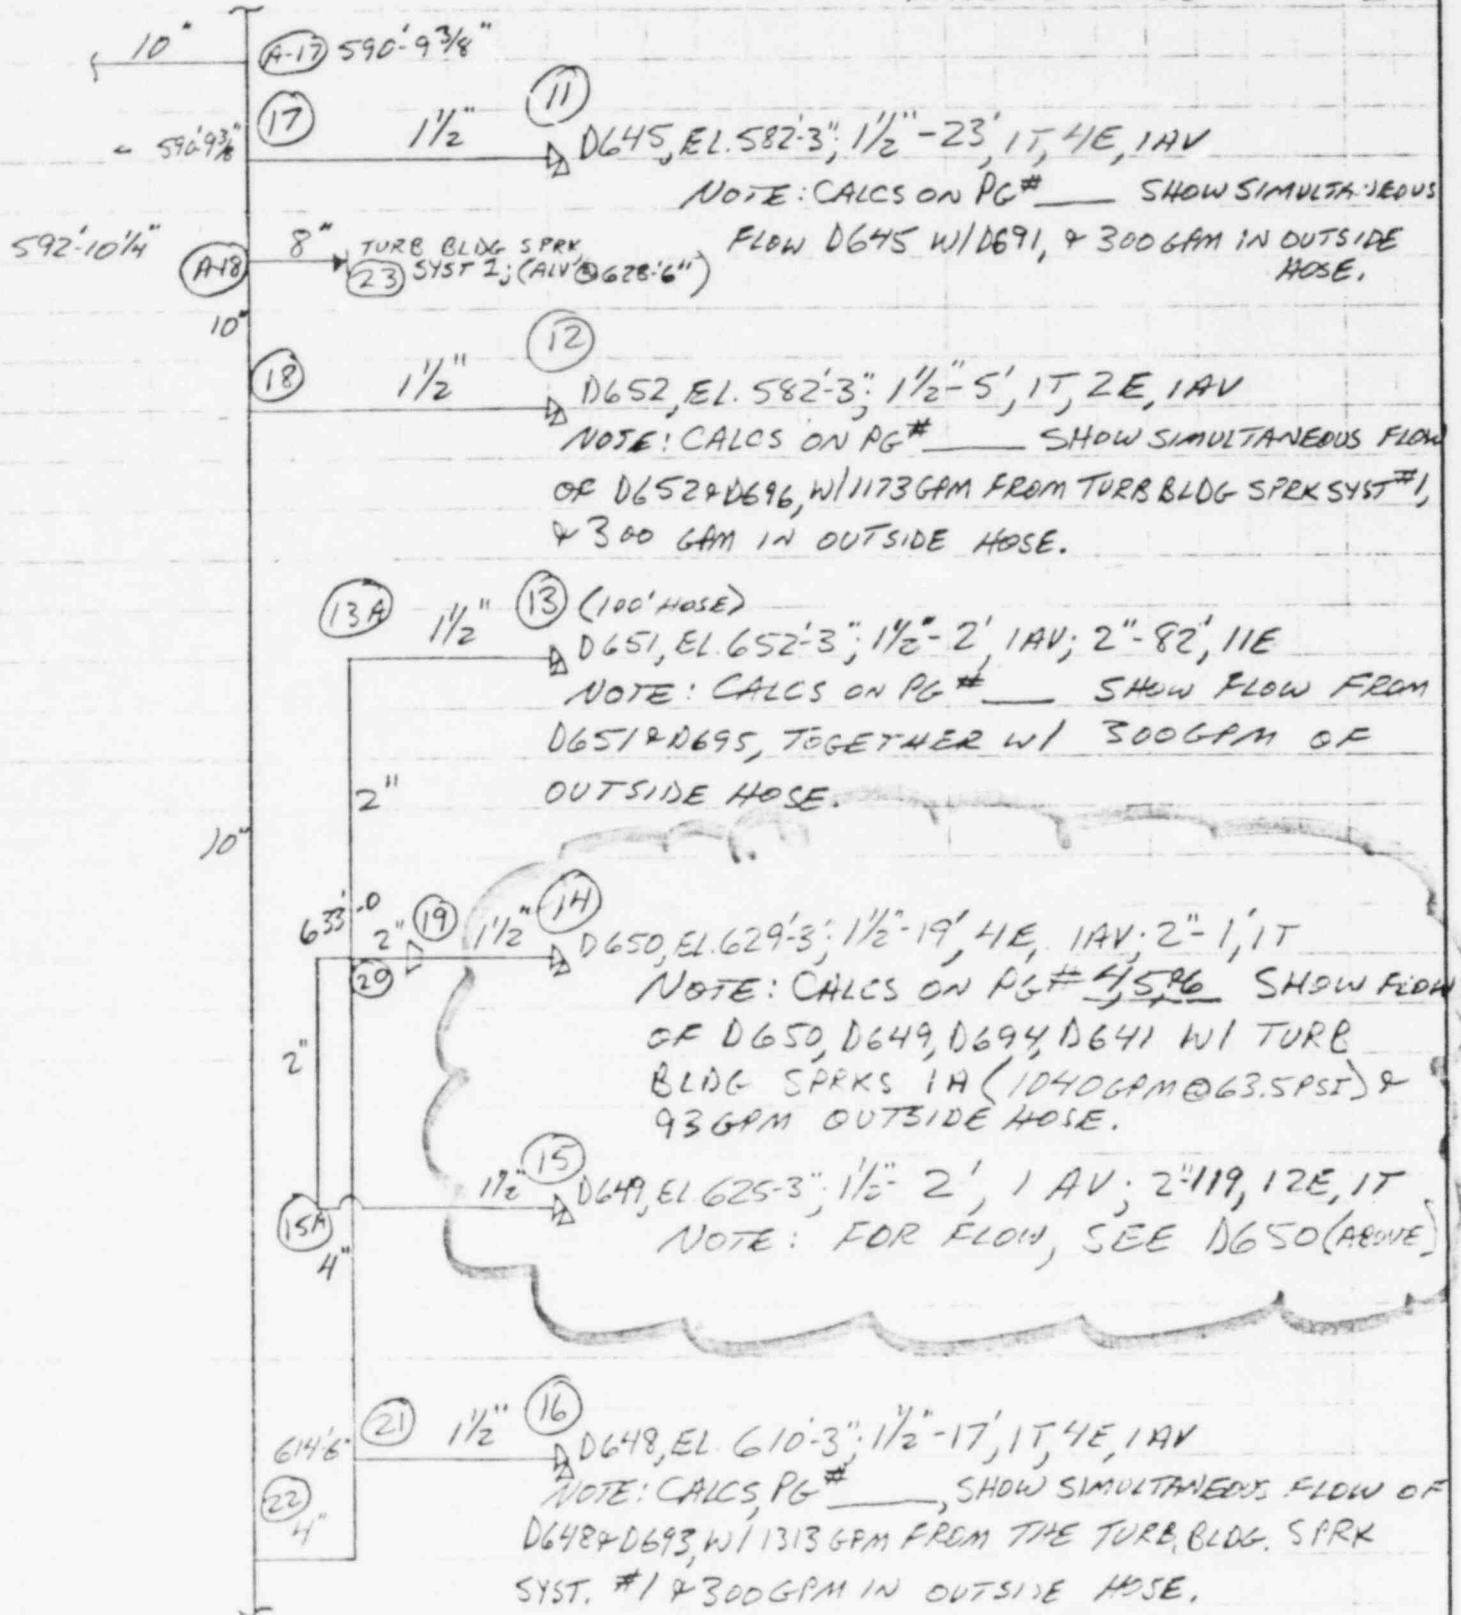 10"
A-17 590'-9 3/8"
17 1 1/2" 11
590'-9 3/8"
D645, EL. 582'-3"; 1 1/2"-23', 1T, 4E, 1AV
NOTE: CALCS ON PG# ___ SHOW SIMULTANEOUS
FLOW D645 W/D691, & 300 GPM IN OUTSIDE
HOSE.
592'-10 1/4"
A-18 8" TURB BLDG SPRK
23 SYST 1; (ALV @ 628'-6")
10"
18 1 1/2" 12
D652, EL. 582'-3"; 1 1/2"-5', 1T, 2E, 1AV
NOTE: CALCS ON PG# ___ SHOW SIMULTANEOUS FLOW
OF D652 & D696, W/1173 GPM FROM TURB BLDG SPRK SYST #1,
& 300 GPM IN OUTSIDE HOSE.
13A 1 1/2" 13 (100' HOSE)
D651, EL. 652'-3"; 1 1/2"-2', 1AV; 2"-82', 11E
NOTE: CALCS ON PG# ___ SHOW FLOW FROM
D651 & D695, TOGETHER W/ 300 GPM OF
OUTSIDE HOSE.
2"
10"
633'-0 2" 19 1 1/2" 14
20
D650, EL. 629'-3; 1 1/2"-19', 4E, 1AV; 2"-1', 1T
NOTE: CALCS ON PG# 4,5,&6 SHOW FLOW
OF D650, D649, D694, D641 W/ TURB
BLDG SPRKS 1A (1040 GPM @ 63.5 PSI) &
93 GPM OUTSIDE HOSE.
2"
15A 1 1/2" 15
D649, EL 625-3"; 1 1/2"- 2', 1 AV; 2"-119, 12E, 1T
NOTE: FOR FLOW, SEE D650 (ABOVE)
4"
614'6" 21 1 1/2" 16
D648, EL. 610'-3"; 1 1/2"-17', 1T, 4E, 1AV
NOTE: CALCS, PG# ___, SHOW SIMULTANEOUS FLOW OF
D648 & D693, W/ 1313 GPM FROM THE TURB. BLDG. SPRK
SYST. #1 & 300 GPM IN OUTSIDE HOSE.
22 4"